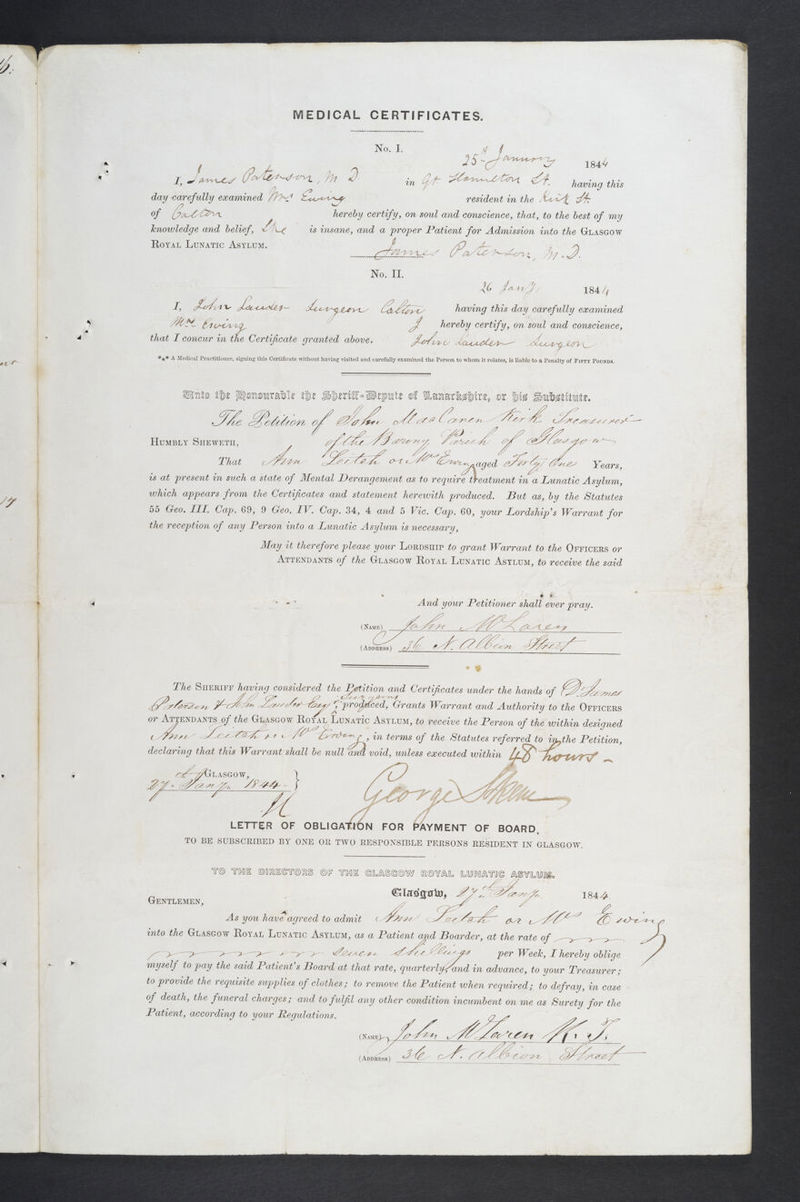 MEDICAL CERTIFICATES.
No. I.
25th January 1844
I, James Paterson, M D in Gt Hamilton St. having this
day carefully examined Mrs Ewing resident in the Kirk St
of Calton hereby certify, on soul and conscience, that, to the best of my
knowledge and belief, She is insane, and a proper Patient for Admission into the GLASGOW
ROYAL LUNATIC ASYLUM.
James Paterson, M.D.
No. II.
26 Jany 1844
I, John Lauder Surgeon Calton having this day carefully examined
Mrs Ewing hereby certify, on soul and conscience,
that I concur in the Certificate granted above. John Lauder Surgeon
*** A Medical Practitioner, signing this Certificate without having visited and carefully examined the Person to whom it relates, is liable to a Penalty of FIFTY POUNDS.
Unto the Honourable the Sheriff-Depute of Lanarkshire, or his Substitute.
The Petition of John MacLaren Kirk Treasurer
HUMBLY SHEWETH, of the Barony Parish of Glasgow
That Ann Leitch or Mrs Ewing aged Forty One Years,
is at present in such a state of Mental Derangement as to require treatment in a Lunatic Asylum,
which appears from the Certificates and statement herewith produced. But as, by the Statutes
55 Geo. III. Cap. 69, 9 Geo. IV. Cap. 34, 4 and 5 Vic. Cap. 60, your Lordship's Warrant for
the reception of any Person into a Lunatic Asylum is necessary,
May it therefore please your LORDSHIP to grant Warrant to the OFFICERS or
ATTENDANTS of the GLASGOW ROYAL LUNATIC ASYLUM, to receive the said
And your Petitioner shall ever pray.
(NAME) John McLaren
(ADDRESS) 36 N. Albion Street
The SHERIFF having considered the Petition and Certificates under the hands of Dr James
Surgeons
Paterson & John Lauder Esqr produced, Grants Warrant and Authority to the OFFICERS
or ATTENDANTS of the GLASGOW ROYAL LUNATIC ASYLUM, to receive the Person of the within designed
Ann Leitch or Mrs Ewing, in terms of the Statutes referred to in the Petition,
declaring that this Warrant shall be null and void, unless executed within 48 hours
GLASGOW,
27 Jany 1844
George Skene
LETTER OF OBLIGATION FOR PAYMENT OF BOARD,
TO BE SUBSCRIBED BY ONE OR TWO RESPONSIBLE PERSONS RESIDENT IN GLASGOW.
TO THE DIRECTORS OF THE GLASGOW ROYAL LUNATIC ASYLUM.
Glasgow, 27th Jany 1844
GENTLEMEN,
As you have agreed to admit Ann Leitch or Mrs Ewing
into the GLASGOW ROYAL LUNATIC ASYLUM, as a Patient and Boarder, at the rate of
Seven Shillings per Week, I hereby oblige
myself to pay the said Patient's Board at that rate, quarterly, and in advance, to your Treasurer;
to provide the requisite supplies of clothes; to remove the Patient when required; to defray, in case
of death, the funeral charges; and to fulfil any other condition incumbent on me as Surety for the
Patient, according to your Regulations.
(NAME) John McLaren K. T.
(ADDRESS) 36 N. Albion Street